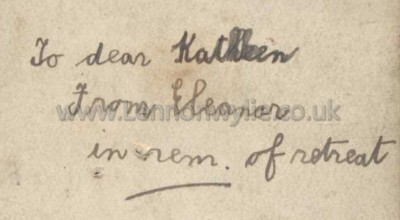 To dear Kathleen
From Eleanor
www.Lennonwylie.co.uk
in rem. of retreat